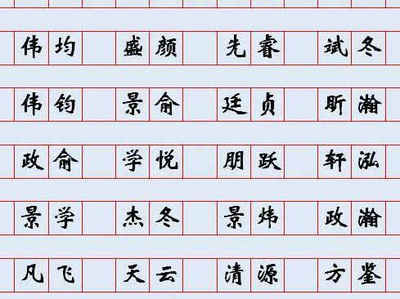 伟均 盛颜 先睿 斌冬
伟钧 景俞 廷贞 昕瀚
政俞 学悦 朋跃 轩泓
景学 杰冬 景炜 政瀚
凡飞 天云 清源 方鉴